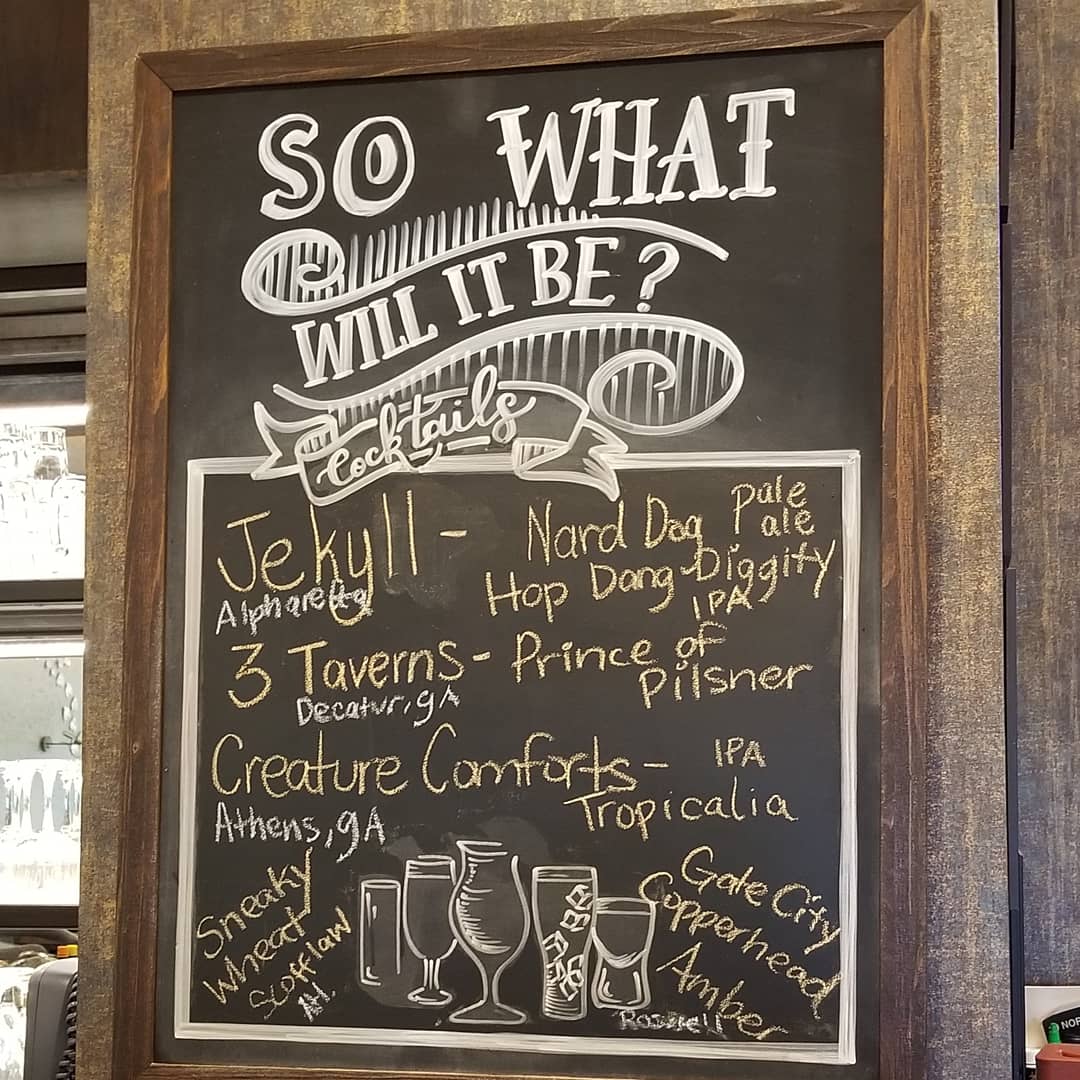 SO WHAT
WILL IT BE?
Cocktails
Jekyll -
Alpharetta
Nard Dog Pale ale
Hop Dang Diggity
IPA
3 Taverns - Prince of
Pilsner
Decatur, gA
Creature Comforts - IPA
Tropicalia
Athens, gA
Sneaky
Wheat
Scofflaw
Atl.
Gate City
Copperhead
Amber
Roswell
NOR